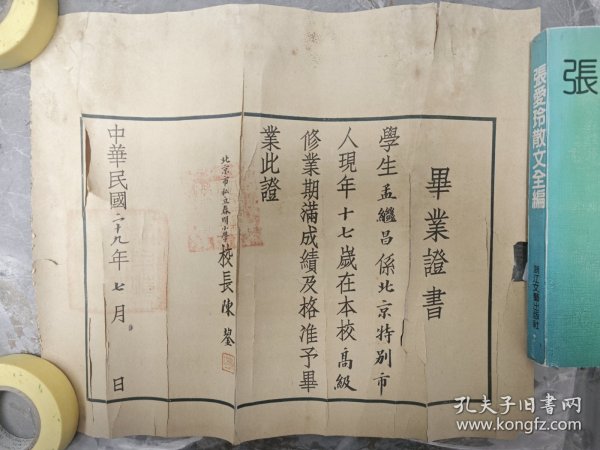 畢業證書
學生孟繼昌係北京特别市
人現年十七歲在本校高級
修業期滿成績及格准予畢
業此證
北京市私立春明小學校長陳鋆
中華民國二十九年七月 日
張
張愛玲散文全編
浙江文藝出版社
孔夫子旧书网
www.kongfz.com